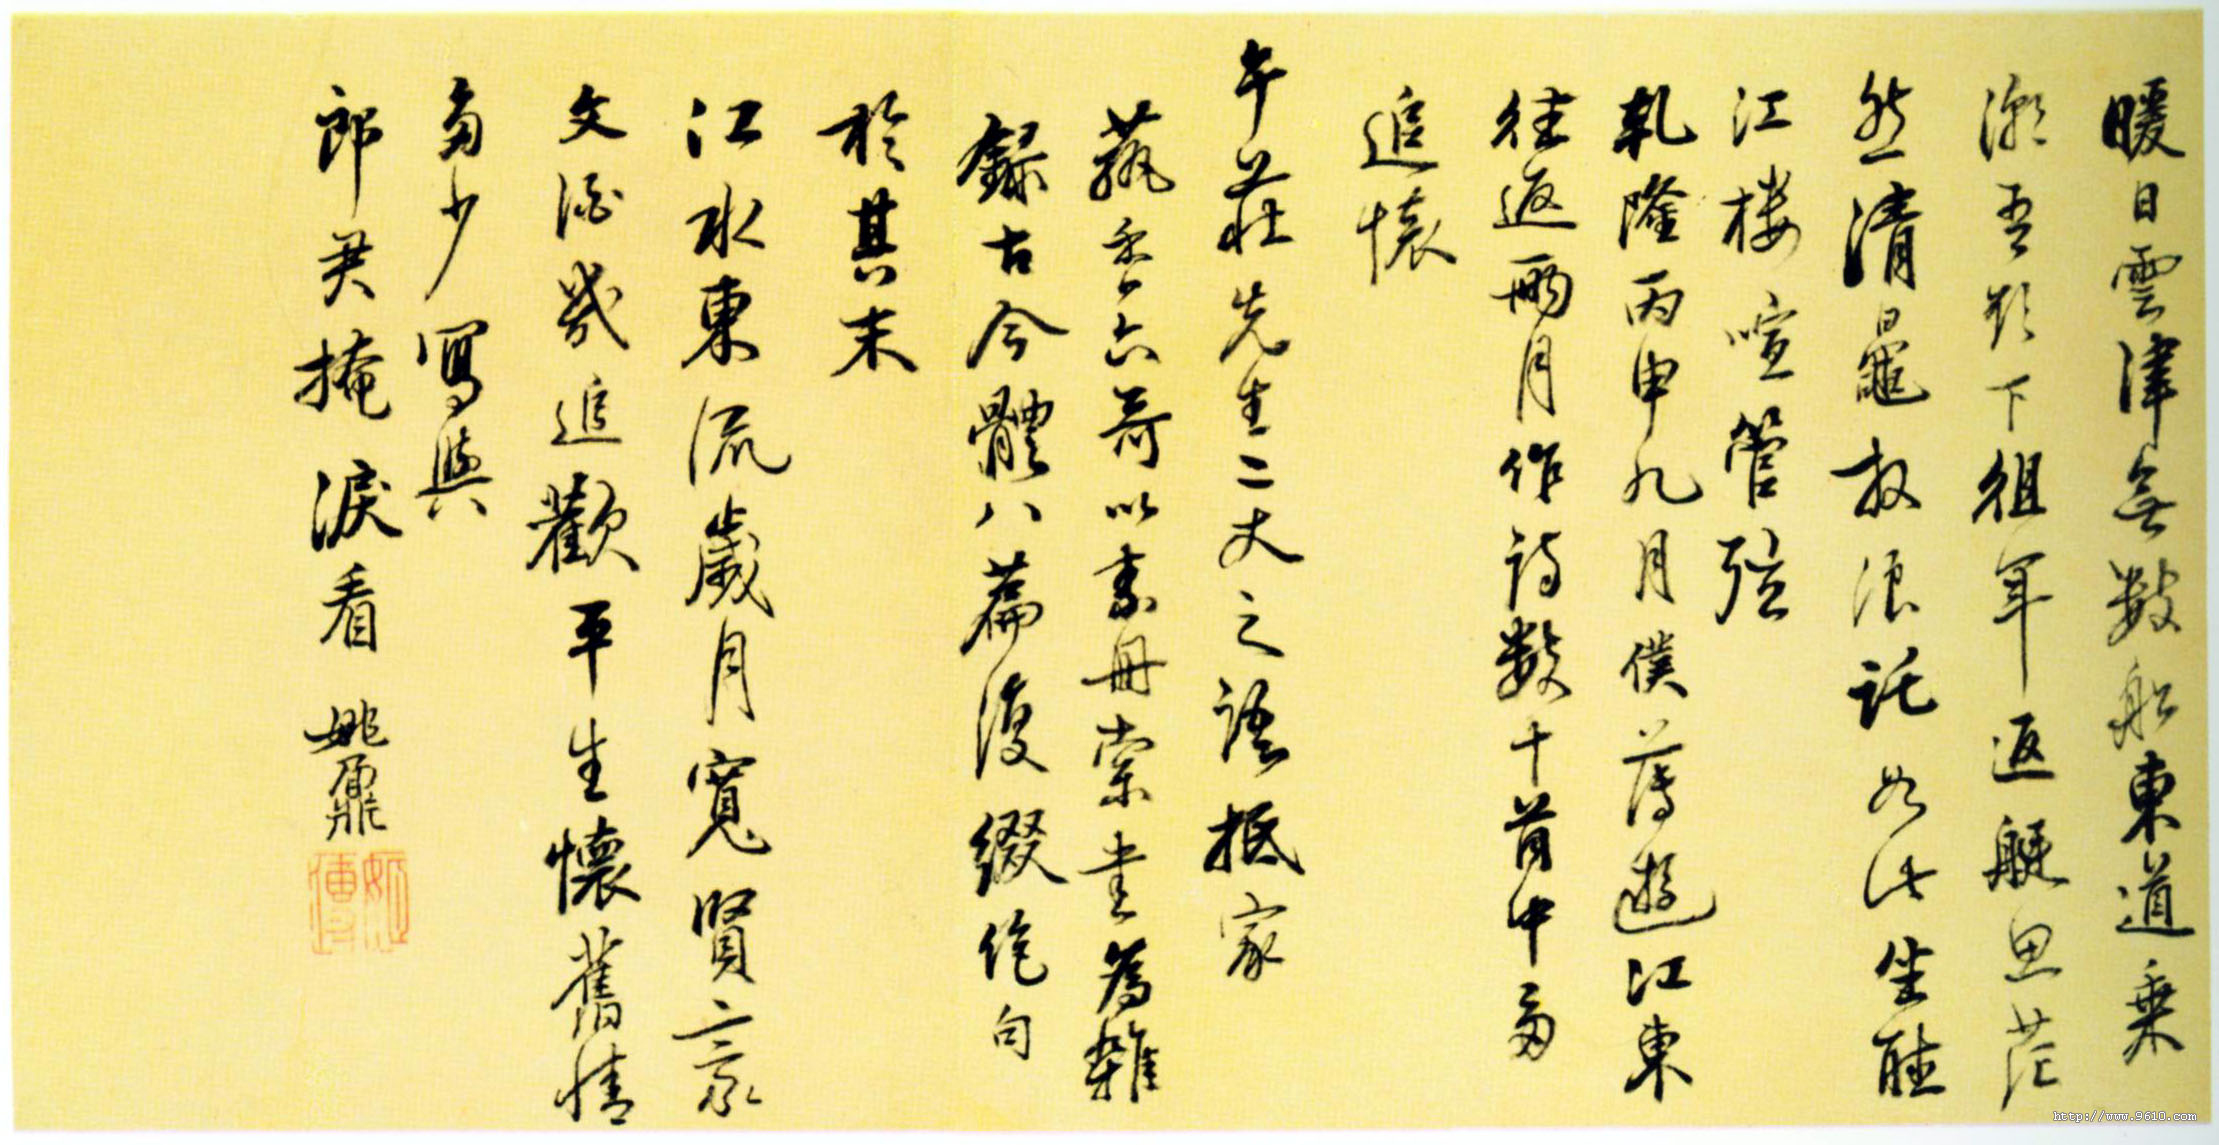 暖日雲津無數船東道乗
潮吾欲下徂年返艇思茫
然清鼂放浪託如此坐聴
江楼喧管弦
乹隆丙申九月僕薄遊江東
往返兩月作詩數十首中多
追懷
午莊先生二丈之語抵家
蓺香六哥以素冊索書為雜
錄古今體八篇復綴绝句
於其末
江水東流歲月寬賢豪
文酒幾追歡平生懷舊情
多少寫與
郎君掩淚看 姚鼐
http://www.9610.com